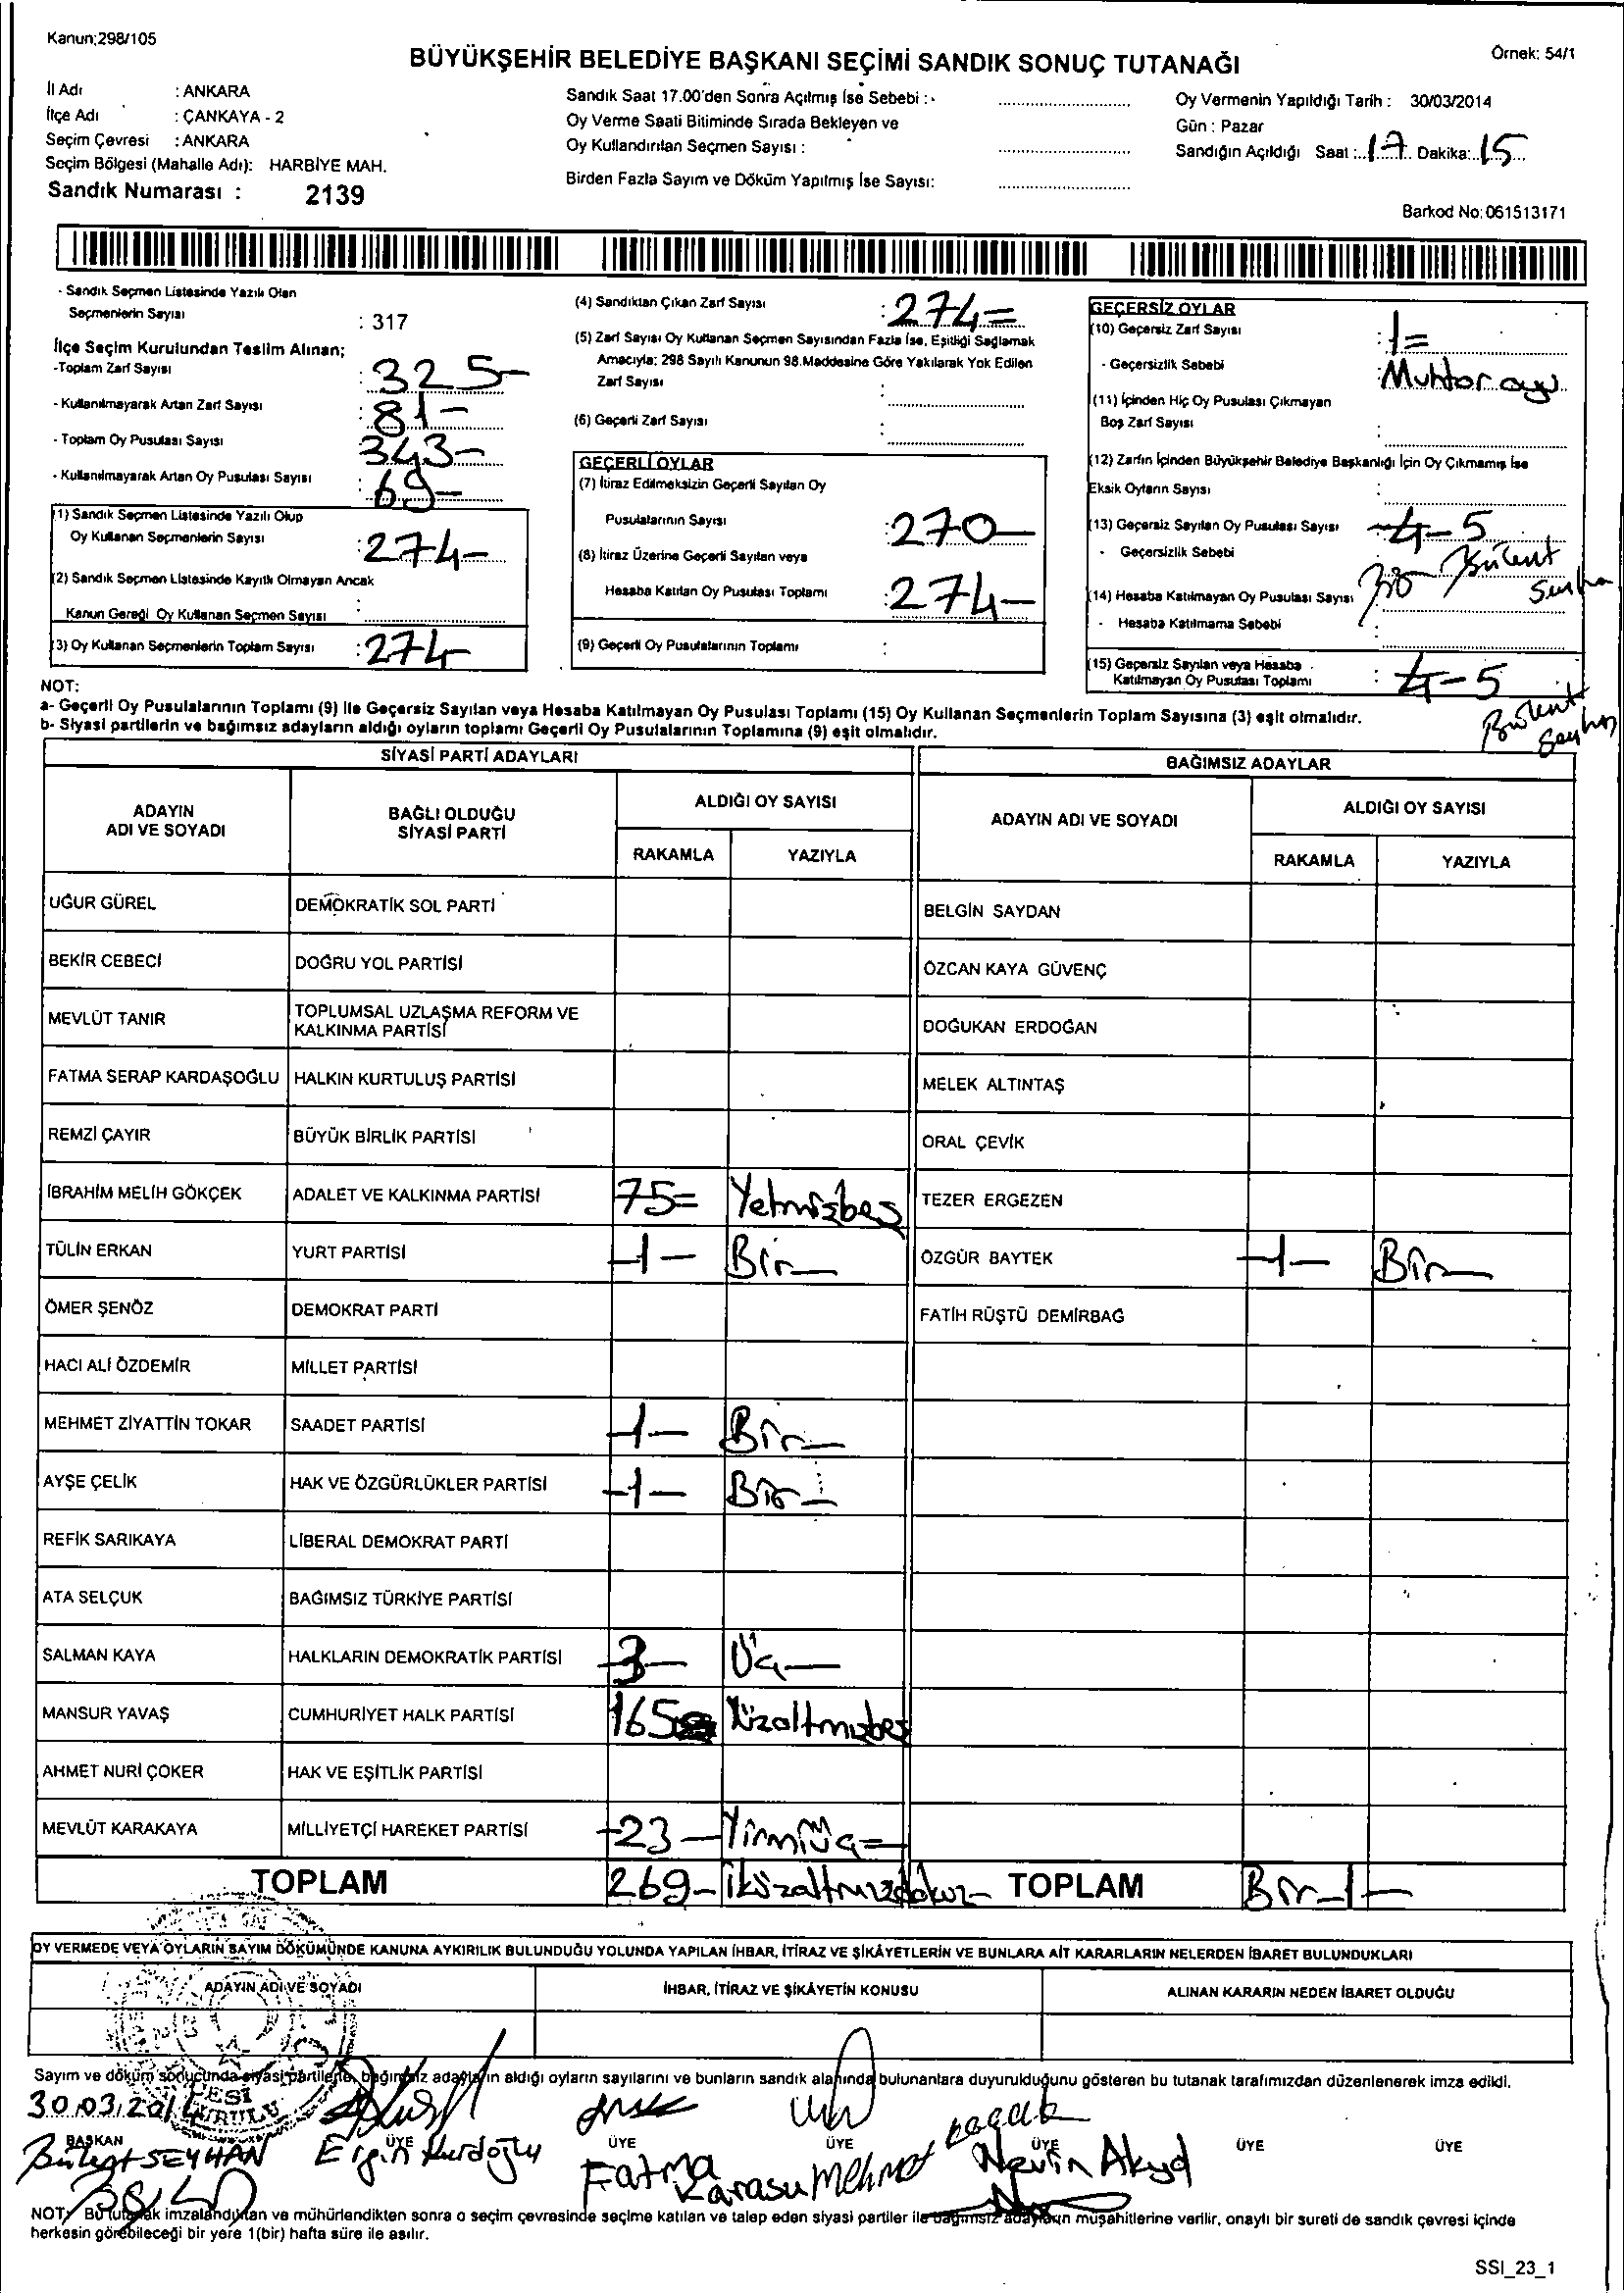 Kanun;298/105
BÜYÜKŞEHİR BELEDİYE BAŞKANI SEÇİMİ SANDIK SONUÇ TUTANAĞI
Örnek: 54/1
İl Adı : ANKARA
İlçe Adı : ÇANKAYA - 2
Seçim Çevresi : ANKARA
Seçim Bölgesi (Mahalle Adı): HARBİYE MAH.
Sandık Numarası : 2139
Sandık Saat 17.00'den Sonra Açılmış İse Sebebi :
Oy Verme Saati Bitiminde Sırada Bekleyen ve
Oy Kullandırılan Seçmen Sayısı :
Birden Fazla Sayım ve Döküm Yapılmış İse Sayısı:
Oy Vermenin Yapıldığı Tarih : 30/03/2014
Gün : Pazar
Sandığın Açıldığı Saat : 17 Dakika: 15
Barkod No: 061513171
- Sandık Seçmen Listesinde Yazılı Olan
Seçmenlerin Sayısı : 317
İlçe Seçim Kurulundan Teslim Alınan;
-Toplam Zarf Sayısı : 325-
- Kullanılmayarak Artan Zarf Sayısı : 81-
- Toplam Oy Pusulası Sayısı 343-
- Kullanılmayarak Artan Oy Pusulası Sayısı : 69-
(1) Sandık Seçmen Listesinde Yazılı Olup
Oy Kullanan Seçmenlerin Sayısı : 274-
(2) Sandık Seçmen Listesinde Kayıtlı Olmayan Ancak
Kanun Gereği Oy Kullanan Seçmen Sayısı :
(3) Oy Kullanan Seçmenlerin Toplam Sayısı : 274-
(4) Sandıktan Çıkan Zarf Sayısı : 274=
(5) Zarf Sayısı Oy Kullanan Seçmen Sayısından Fazla İse, Eşitliği Sağlamak
Amacıyla; 298 Sayılı Kanunun 98.Maddesine Göre Yakılarak Yok Edilen
Zarf Sayısı :
(6) Geçerli Zarf Sayısı :
GEÇERLİ OYLAR
(7) İtiraz Edilmeksizin Geçerli Sayılan Oy
Pusulalarının Sayısı : 270-
(8) İtiraz Üzerine Geçerli Sayılan veya
Hesaba Katılan Oy Pusulası Toplamı : 274-
(9) Geçerli Oy Pusulalarının Toplamı :
GEÇERSİZ OYLAR
(10) Geçersiz Zarf Sayısı : 1=
- Geçersizlik Sebebi : Muhtar oyu
(11) İçinden Hiç Oy Pusulası Çıkmayan
Boş Zarf Sayısı :
(12) Zarfın İçinden Büyükşehir Belediye Başkanlığı İçin Oy Çıkmamış İse
Eksik Oyların Sayısı :
(13) Geçersiz Sayılan Oy Pusulası Sayısı -4- 5
- Geçersizlik Sebebi Bülent
(14) Hesaba Katılmayan Oy Pusulası Sayısı
- Hesaba Katılmama Sebebi :
(15) Geçersiz Sayılan veya Hesaba
Katılmayan Oy Pusulası Toplamı : 4- 5
Bülent
Seyhan
NOT:
a- Geçerli Oy Pusulalarının Toplamı (9) ile Geçersiz Sayılan veya Hesaba Katılmayan Oy Pusulası Toplamı (15) Oy Kullanan Seçmenlerin Toplam Sayısına (3) eşit olmalıdır.
b- Siyasi partilerin ve bağımsız adayların aldığı oyların toplamı Geçerli Oy Pusulalarının Toplamına (9) eşit olmalıdır.
SİYASİ PARTİ ADAYLARI
BAĞIMSIZ ADAYLAR
ADAYIN
ADI VE SOYADI
BAĞLI OLDUĞU
SİYASİ PARTİ
ALDIĞI OY SAYISI
RAKAMLA YAZIYLA
ADAYIN ADI VE SOYADI
ALDIĞI OY SAYISI
RAKAMLA YAZIYLA
UĞUR GÜREL DEMOKRATİK SOL PARTİ BELGİN SAYDAN
BEKİR CEBECİ DOĞRU YOL PARTİSİ ÖZCAN KAYA GÜVENÇ
MEVLÜT TANIR TOPLUMSAL UZLAŞMA REFORM VE
KALKINMA PARTİSİ DOĞUKAN ERDOĞAN
FATMA SERAP KARDAŞOĞLU HALKIN KURTULUŞ PARTİSİ MELEK ALTINTAŞ
REMZİ ÇAYIR BÜYÜK BİRLİK PARTİSİ ORAL ÇEVİK
İBRAHİM MELİH GÖKÇEK ADALET VE KALKINMA PARTİSİ 75= Yetmişbeş TEZER ERGEZEN
TÜLİN ERKAN YURT PARTİSİ -1- Bir- ÖZGÜR BAYTEK -1- Bir-
ÖMER ŞENÖZ DEMOKRAT PARTİ FATİH RÜŞTÜ DEMİRBAĞ
HACI ALİ ÖZDEMİR MİLLET PARTİSİ
MEHMET ZİYATTİN TOKAR SAADET PARTİSİ -1- Bir-
AYŞE ÇELİK HAK VE ÖZGÜRLÜKLER PARTİSİ -1- Bir-
REFİK SARIKAYA LİBERAL DEMOKRAT PARTİ
ATA SELÇUK BAĞIMSIZ TÜRKİYE PARTİSİ
SALMAN KAYA HALKLARIN DEMOKRATİK PARTİSİ -3- Üç-
MANSUR YAVAŞ CUMHURİYET HALK PARTİSİ 165 Yüzaltmışbeş
AHMET NURİ ÇOKER HAK VE EŞİTLİK PARTİSİ
MEVLÜT KARAKAYA MİLLİYETÇİ HAREKET PARTİSİ -23- Yirmiüç=
TOPLAM 269- ikiyüzaltmışdokuz- TOPLAM Bir-1-
OY VERMEDE VEYA OYLARIN SAYIM DÖKÜMÜNDE KANUNA AYKIRILIK BULUNDUĞU YOLUNDA YAPILAN İHBAR, İTİRAZ VE ŞİKÂYETLERİN VE BUNLARA AİT KARARLARIN NELERDEN İBARET BULUNDUKLARI
ADAYIN ADI VE SOYADI İHBAR, İTİRAZ VE ŞİKÂYETİN KONUSU ALINAN KARARIN NEDEN İBARET OLDUĞU
Sayım ve döküm sonucunda siyasi partilerle, bağımsız adayların aldığı oyların sayılarını ve bunların sandık alanında bulunanlara duyurulduğunu gösteren bu tutanak tarafımızdan düzenlenerek imza edildi.
30.03.2014
BAŞKAN ÜYE ÜYE ÜYE ÜYE ÜYE ÜYE
Bülent SEYHAN Ergin Kurdoğlu Fatma Karasu Mehmet Nevin Akyd
NOT: Bu tutanak imzalandıktan ve mühürlendikten sonra o seçim çevresinde seçime katılan ve talep eden siyasi partiler ile bağımsız adayların müşahitlerine verilir, onaylı bir sureti de sandık çevresi içinde
herkesin görebileceği bir yere 1(bir) hafta süre ile asılır.
SSI_23_1